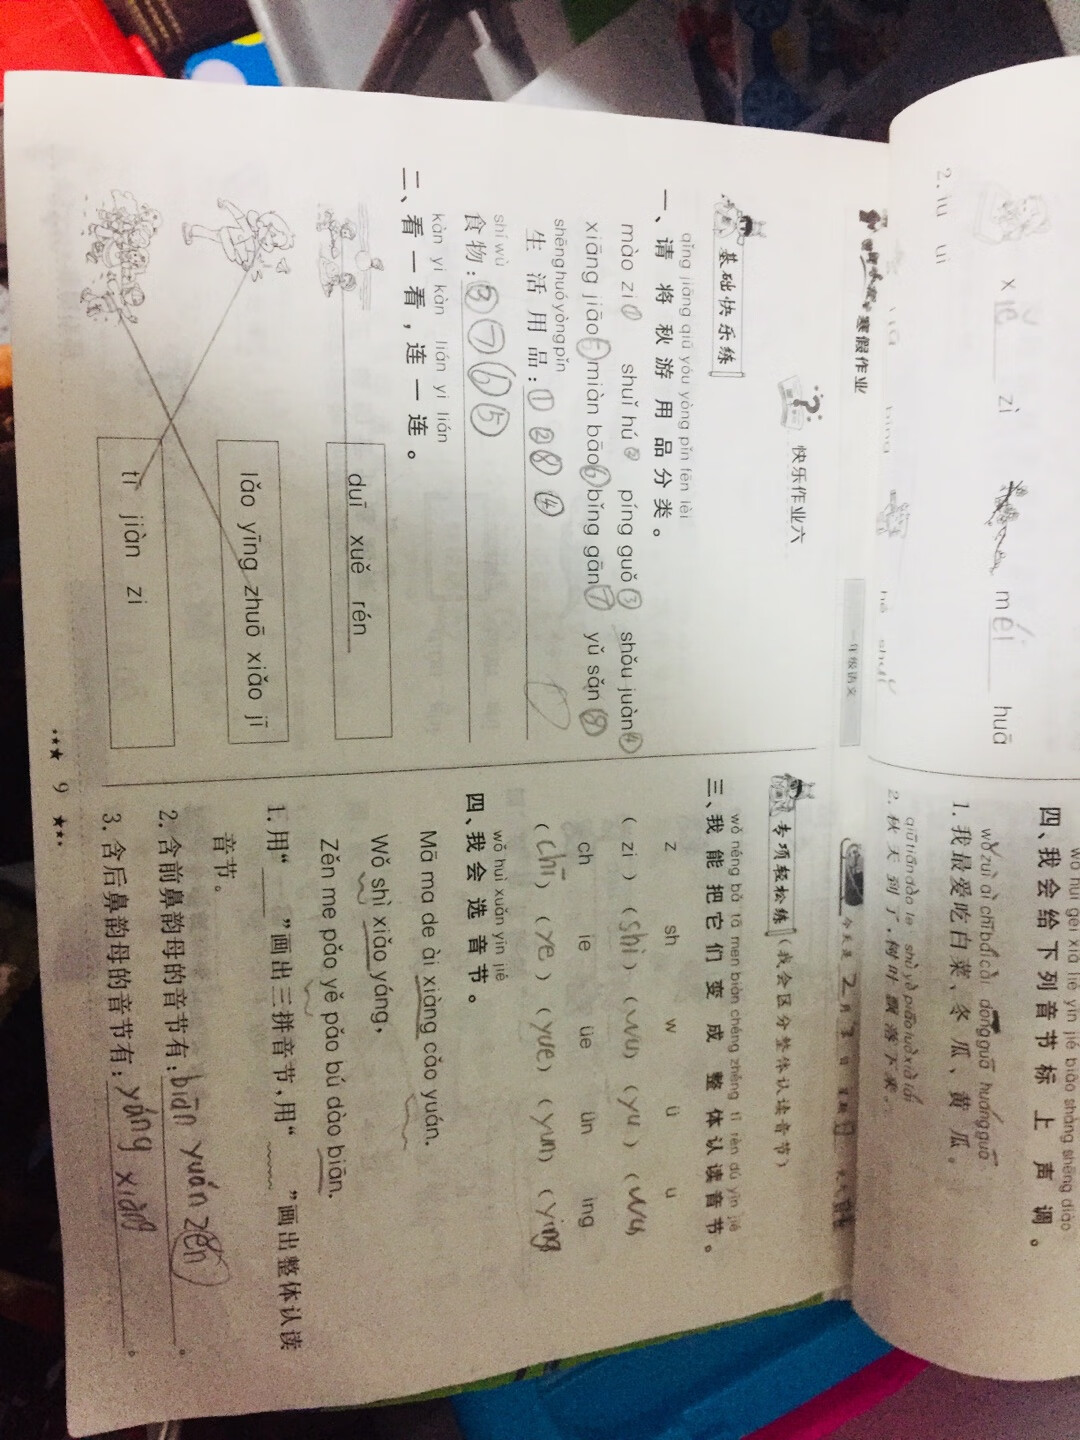 x zì méi huā
2. iu ui
寒假作业
一年级语文
wǒ huì gěi xià liè yīn jié biāo shàng shēng diào
四、我会给下列音节标上声调。
1. 我最爱吃白菜、冬瓜、黄瓜。
2. 秋天到了，树叶飘落下来。
快乐作业六
基础快乐练
qǐng jiāng qiū yóu yòng pǐn fēn lèi
一、请将秋游用品分类。
mào zi① shuǐ hú② píng guǒ③ shǒu juàn④
xiāng jiāo⑤ miàn bāo⑥ bǐng gān⑦ yǔ sǎn⑧
shēng huó yòng pǐn
生活用品：①②⑧④
shí wù
食物：③⑦⑥⑤
kàn yi kàn lián yi lián
二、看一看，连一连。
duī xuě rén
lǎo yīng zhuō xiǎo jī
tī jiàn zi
今天是2月 日 星期
专项轻松练（我会区分整体认读音节）
wǒ néng bǎ tā men biàn chéng zhěng tǐ rèn dú yīn jié
三、我能把它们变成整体认读音节。
z sh w ü u
( zi ) (shi) (wu) (yu) (wu
ch ie üe ün ing
(chī) (ye) (yue) (yun) (ying
wǒ huì xuǎn yīn jié
四、我会选音节。
Mā ma de ài xiàng cǎo yuán.
Wǒ shì xiǎo yáng,
Zěn me pǎo yě pǎo bú dào biān.
1. 用“ ”画出三拼音节，用“ ”画出整体认读
音节。
2. 含前鼻韵母的音节有：biān yuán zěn。
3. 含后鼻韵母的音节有：yáng xiàng。
9